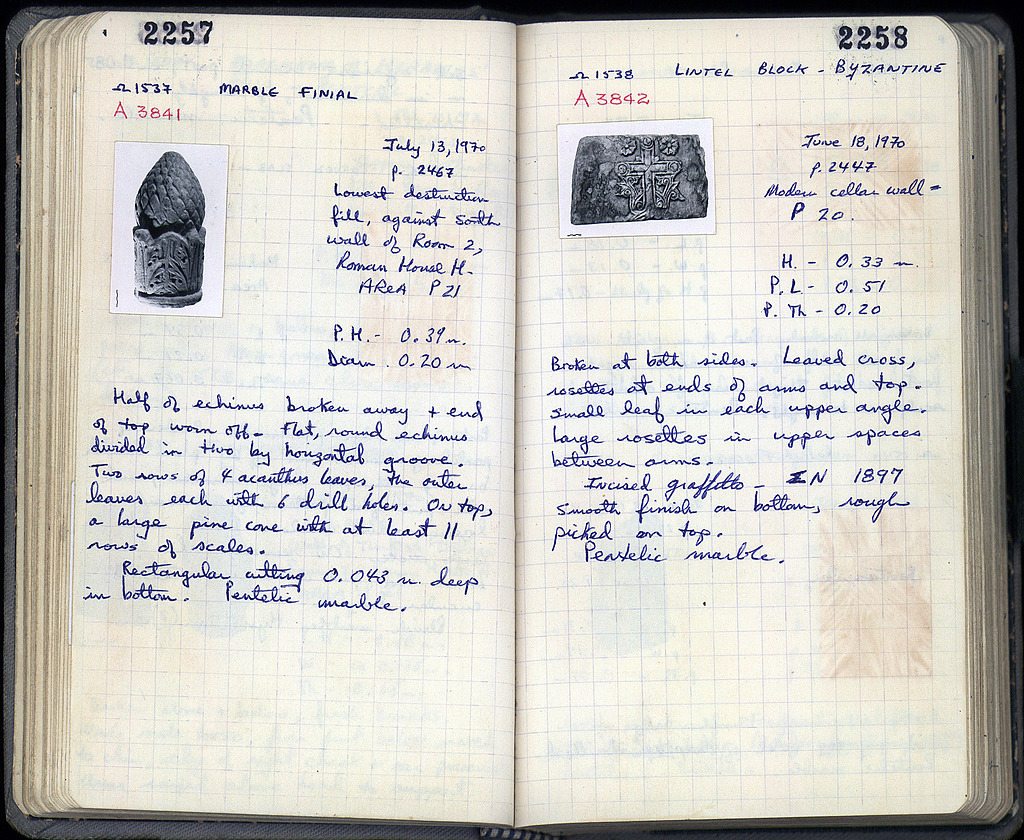 2257
Ω 1537 MARBLE FINIAL
A 3841
July 13, 1970
p. 2467
Lowest destruction
fill, against south
wall of Room 2,
Roman House H-
AREA P 21
P.H. - 0.39 m.
Diam. 0.20 m
Half of echinus broken away + end
of top worn off - Flat, round echinus
divided in two by horizontal groove.
Two rows of 4 acanthus leaves, the outer
leaves each with 6 drill holes. On top,
a large pine cone with at least 11
rows of scales.
Rectangular cutting 0.043 m. deep
in bottom. Pentelic marble.
2258
Ω 1538 LINTEL BLOCK - BYZANTINE
A 3842
June 18, 1970
p. 2447
Modern cellar wall =
P 20.
H. - 0.33 m.
P. L - 0.51
P. Th - 0.20
Broken at both sides. Leaved cross,
rosettes at ends of arms and top.
Small leaf in each upper angle.
Large rosettes in upper spaces
between arms.
Incised graffitto - ΣN 1897
Smooth finish on bottom, rough
picked on top.
Pentelic marble.